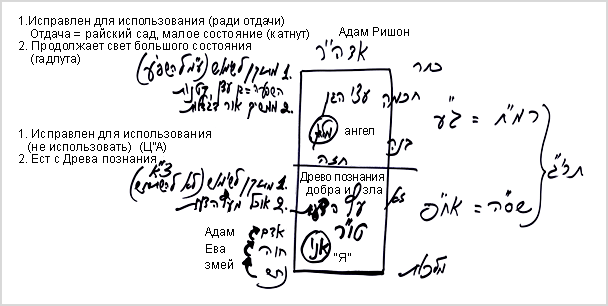 1.Исправлен для использования (ради отдачи)
Отдача = райский сад, малое состояние (катнут)
2. Продолжает свет большого состояния
(гадлута)
Адам Ришон
אדה"ר
כתר
1. מתוקן לשימוש (ע"מ להשפיע)
השפעה = גן עדן קטנות
2. ממשיך אור דגדלות
חכמה
עצי הגן
מלאך
ангел
בינה
חזה
רמ"ח = ג"ע
תרי"ג
1. Исправлен для использования
(не использовать) (Ц"А)
2. Ест с Древа познания
צ"א
1. מתוקן לשימוש (לא להשתמש)
2 אוכל מעץ הדעת
Древо познания
добра и зла
עץ הדעת
טו"ר
אני
"Я"
שס"ה = אח"פ
Адам אדם
Ева חוה
змей נחש
מלכות